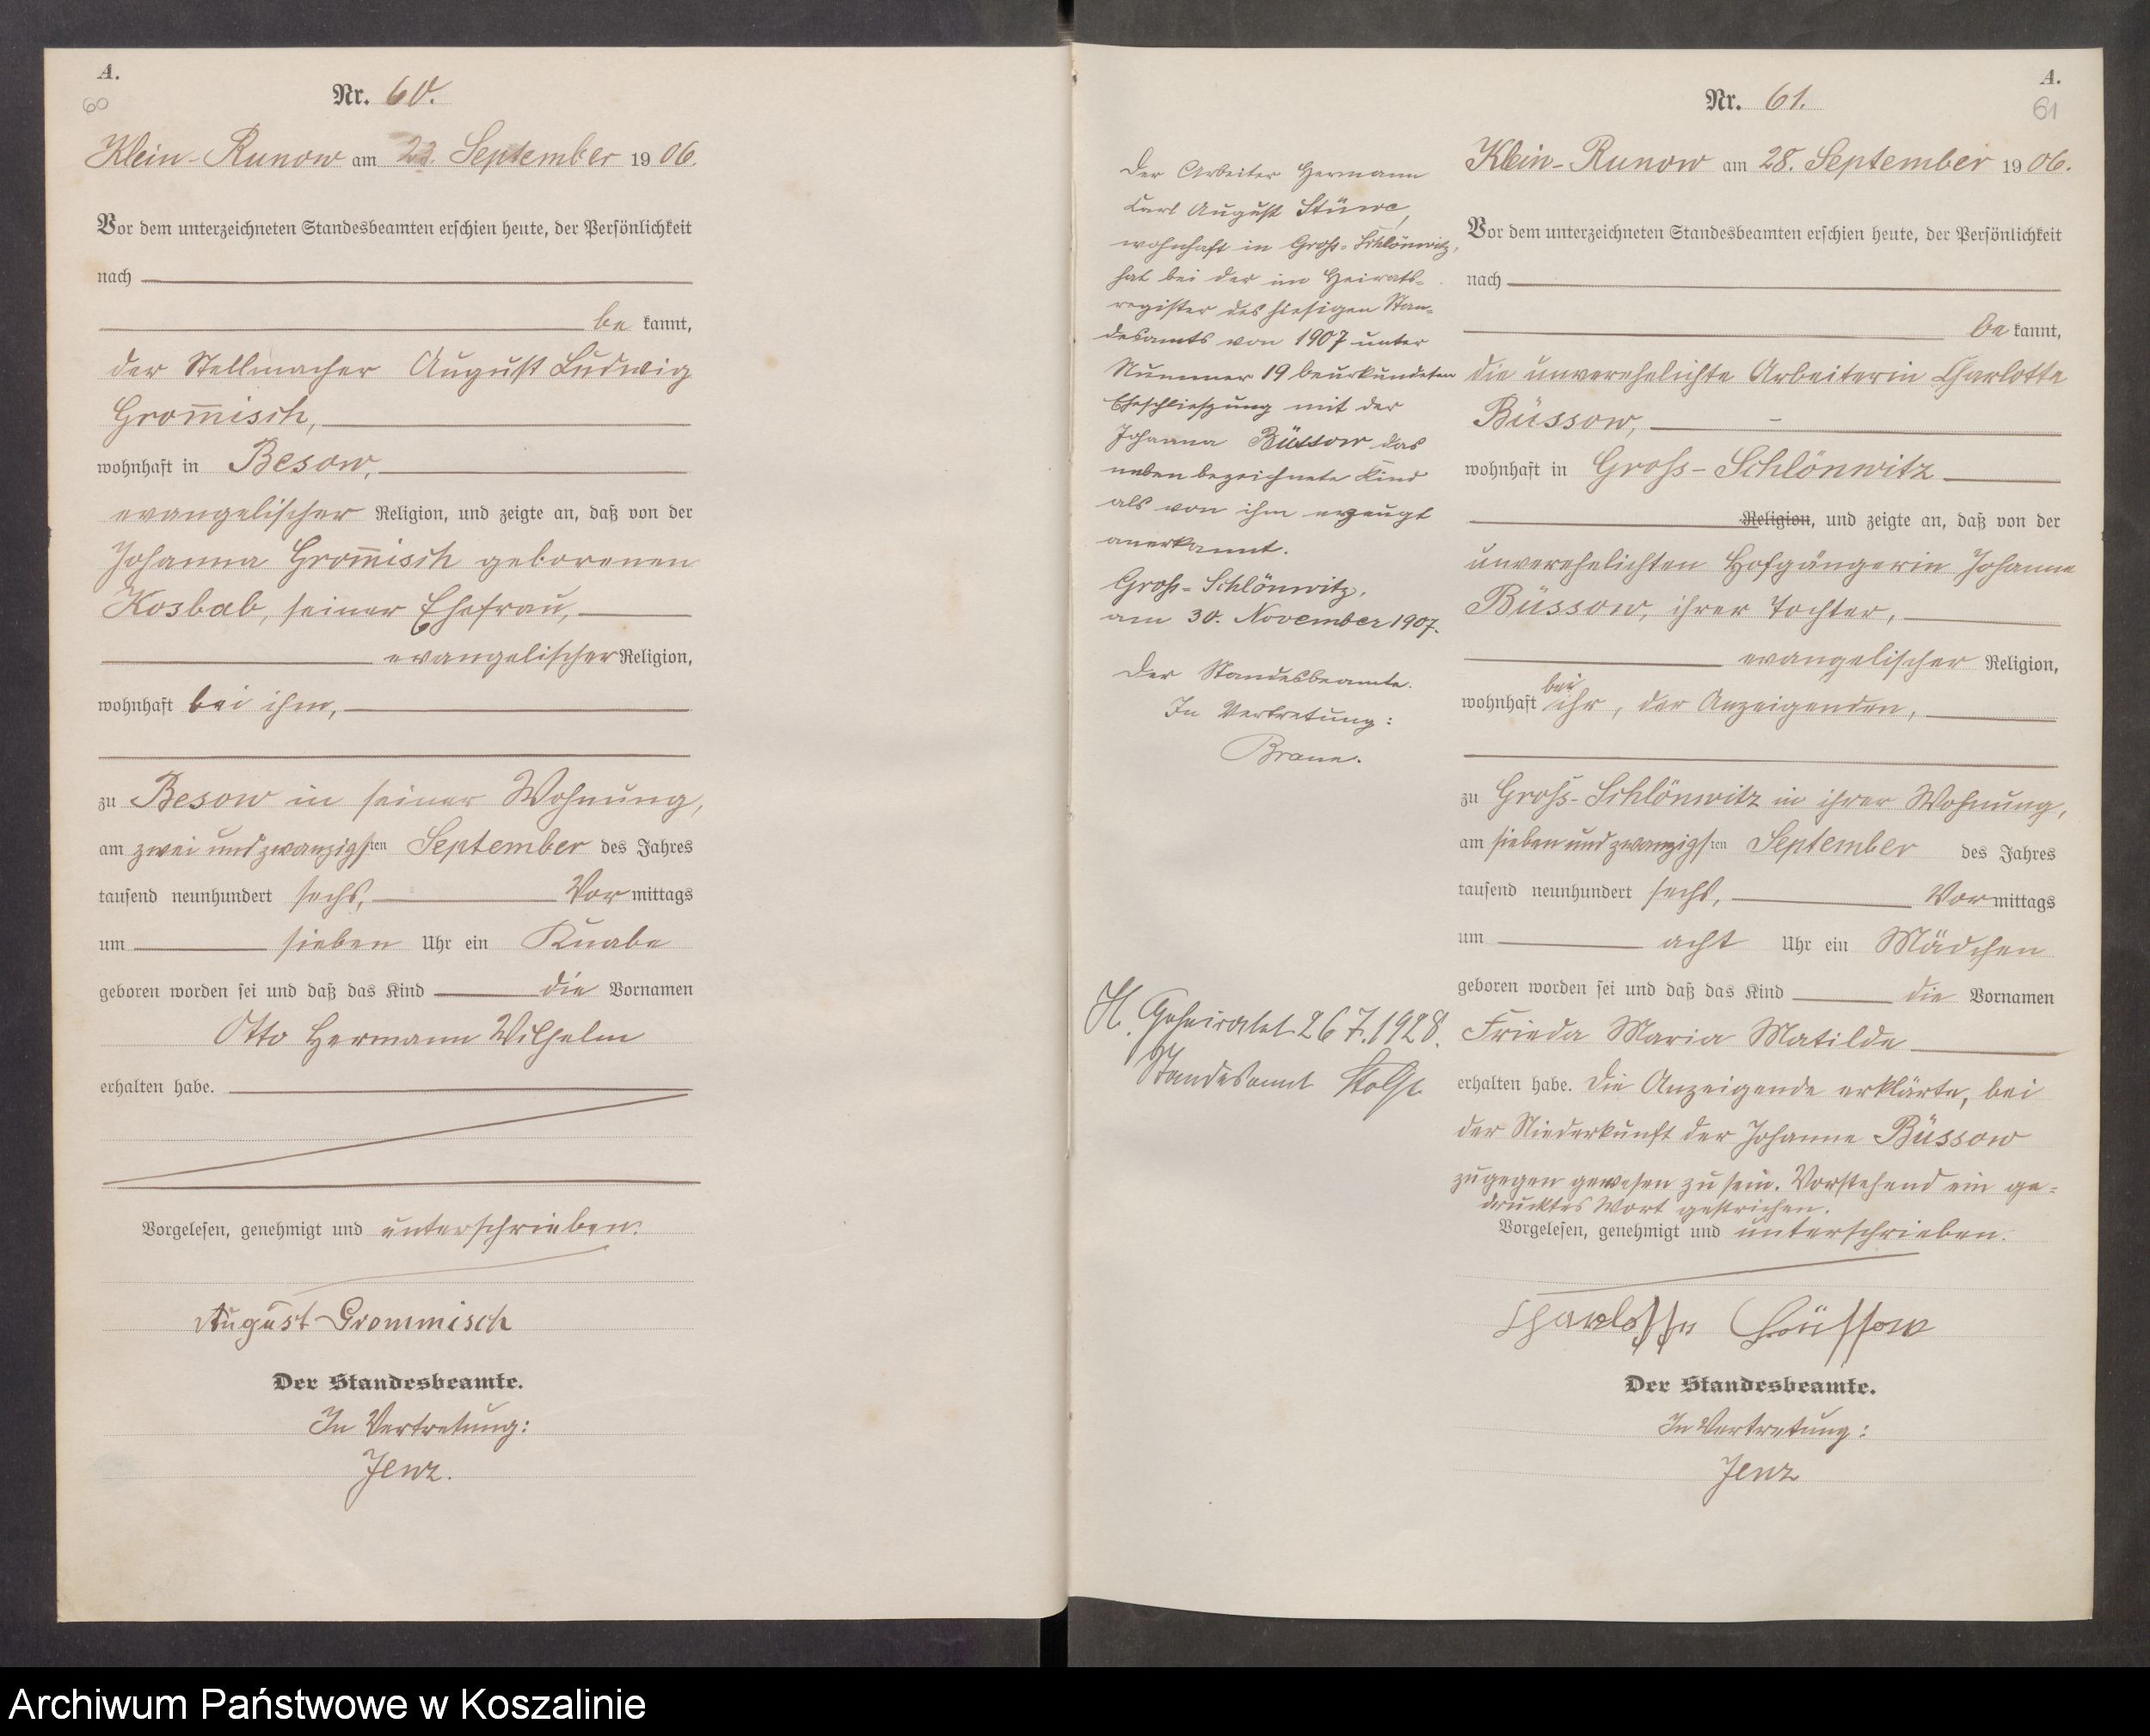 A.
60
Nr. 60.
Klein-Runow am 22. September 1906.
Vor dem unterzeichneten Standesbeamten erschien heute, der Persönlichkeit
nach
be kannt,
der Stellmacher August Ludwig
Grom̅isch,
wohnhaft in Besow,
evangelischer Religion, und zeigte an, daß von der
Johanna Grom̅isch geborenen
Kosbab, seiner Ehefrau,
evangelischer Religion,
wohnhaft bei ihm,
zu Besow in seiner Wohnung,
am zwei und zwanzigsten September des Jahres
tausend neunhundert sechs, Vormittags
um sieben Uhr ein Knabe
geboren worden sei und daß das Kind die Vornamen
Otto Hermann Wilhelm
erhalten habe.
Vorgelesen, genehmigt und unterschrieben.
August Grommisch
Der Standesbeamte.
In Vertretung:
Jenz.
Der Arbeiter Hermann
Carl August Stüwe,
wohnhaft in Groß-Schlönwitz,
hat bei der im Heirats-
register des hiesigen Stan-
desamts von 1907 unter
Nummer 19 beurkundeten
Eheschließung mit der
Johanna Büssow das
nebenbezeichnete Kind
als von ihm erzeugt
anerkannt.
Groß-Schlönwitz,
am 30. November 1907.
Der Standesbeamte.
In Vertretung:
H. Geheiratet 26.7.1928.
Standesamt Stolp
A.
61
Nr. 61.
Klein-Runow am 28. September 1906.
Vor dem unterzeichneten Standesbeamten erschien heute, der Persönlichkeit
nach
be kannt,
die unverehelichte Arbeiterin Charlotte
Büssow,
wohnhaft in Groß-Schlönwitz
Religion, und zeigte an, daß von der
unverehelichten Hofgängerin Johanne
Büssow, ihrer Tochter,
evangelischer Religion,
wohnhaft bei ihr, der Anzeigenden,
zu Groß-Schlönwitz in ihrer Wohnung,
am sieben und zwanzigsten September des Jahres
tausend neunhundert sechs, Vormittags
um acht Uhr ein Mädchen
geboren worden sei und daß das Kind die Vornamen
Frieda Maria Matilde
erhalten habe. Die Anzeigende erklärte, bei
der Niederkunft der Johanne Büssow
zugegen gewesen zu sein. Vorstehend ein ge-
drucktes Wort gestrichen.
Vorgelesen, genehmigt und unterschrieben.
Charlotte Büssow
Der Standesbeamte.
In Vertretung:
Jenz
Archiwum Państwowe w Koszalinie